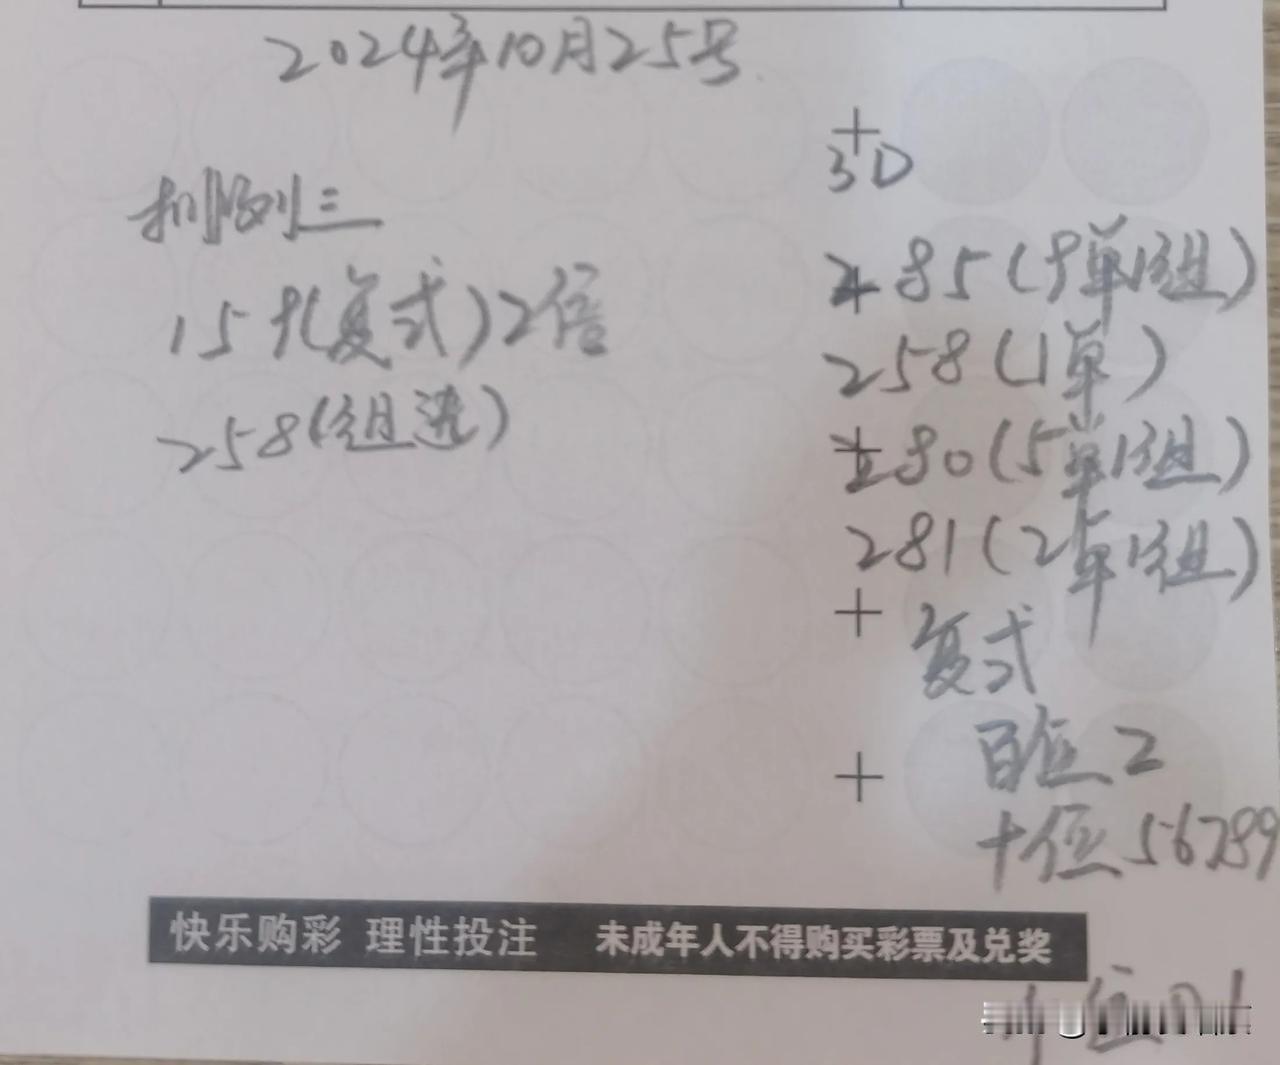 2024年10月25号
排列三
159(复式)2倍
258(组选)
3D
285(9单1组)
258(1单)
280(5单1组)
281(2单1组)
复式
百位2
十位56789
快乐购彩 理性投注 未成年人不得购买彩票及兑奖
个位01